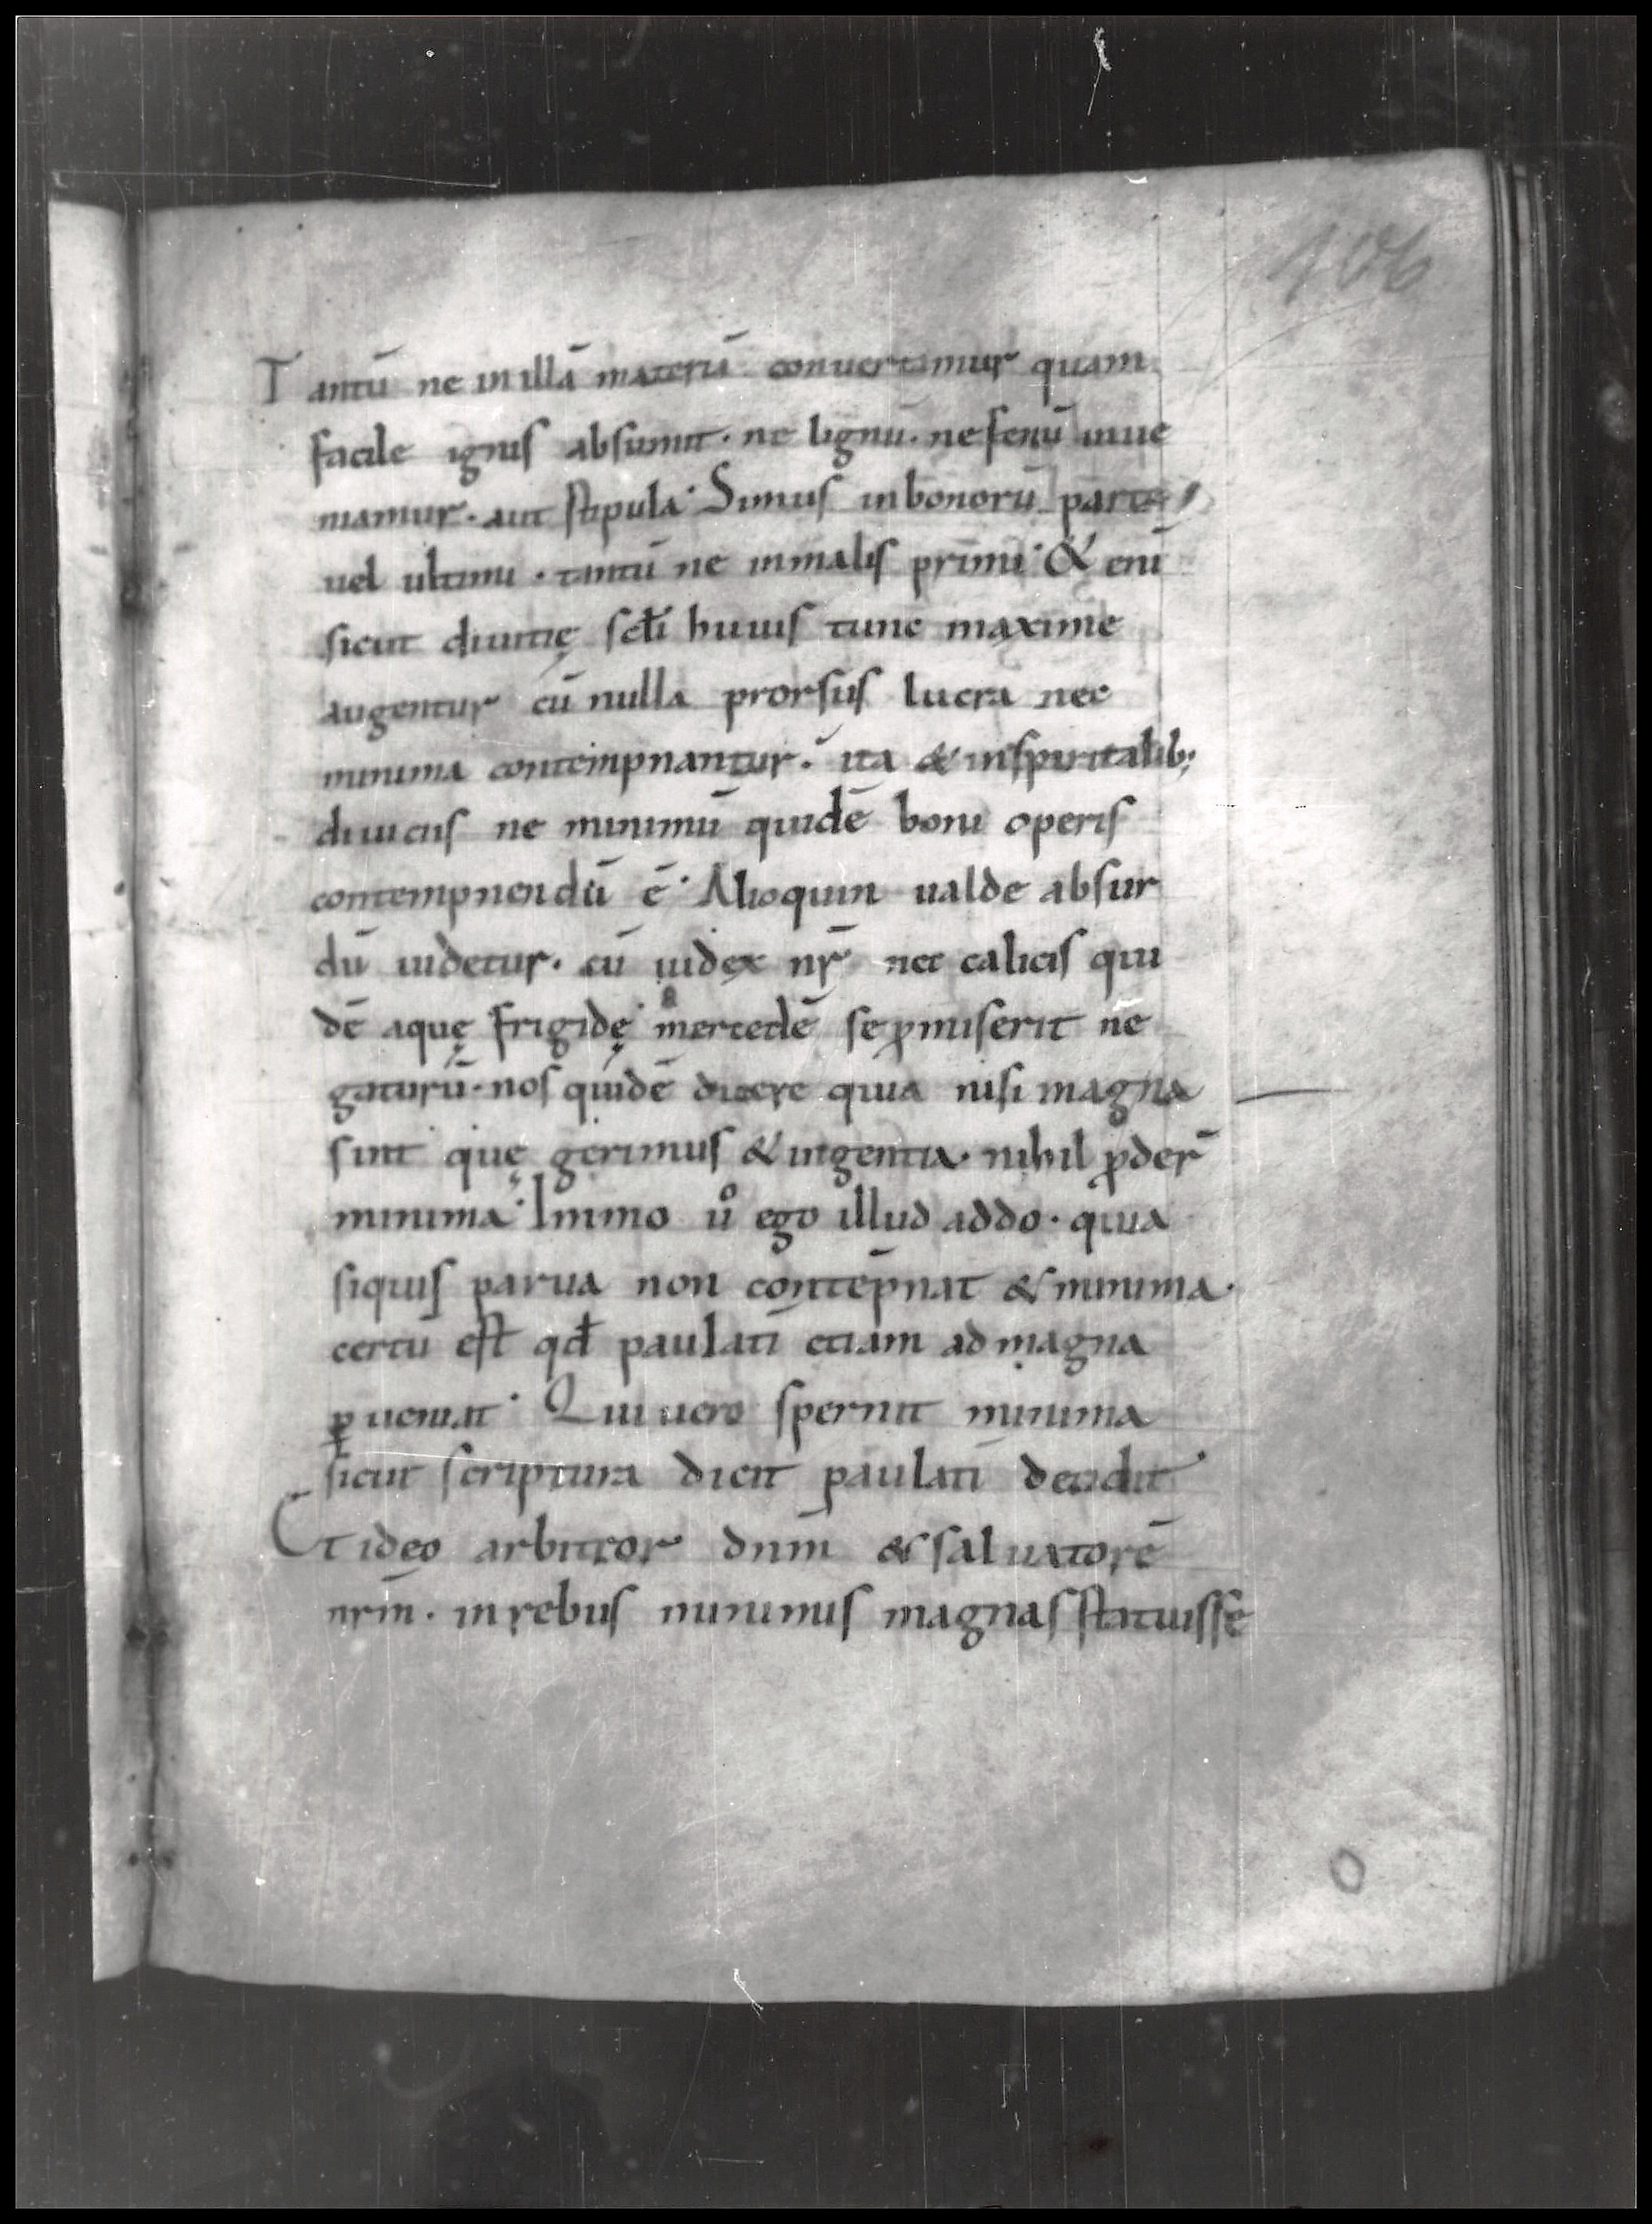 106
Tantū ne in illā materiā conuertamur quam
facile ignis absumit · ne lignū · ne fenū inue
niamur · aut stipula · Simus in bonorū parte
uel ultimi · tantū ne in malis primi · & eni
sicut diuitię scłi huius tunc maxime
augentur cū nulla prorsus lucra nec
minima contempnantur · ita & in spiritalib;
diuiciis ne minimū quidē boni operis
contempnendū ē · Alioquin ualde absur
dū uidetur · cū iudex nr̄ nec calicis qui
dē aquę frigidę mercedē se ꝓmiserit ne
gaturū · nos quidē dicere quia nisi magna
sint quę gerimus & ingentia · nihil ꝓder̄
minima · Immo uͦ ego illud addo · quia
siquis parua non contēpnat & minima ·
certū est qđ paulatī etiam ad magna
ꝑueniat · Qui uero spernit minima
sicut scriptura dicit paulatī decidit ·
Et ideo arbitror dnm̄ & saluatorē
nrm̄ · in rebus minimis magnas statuisse